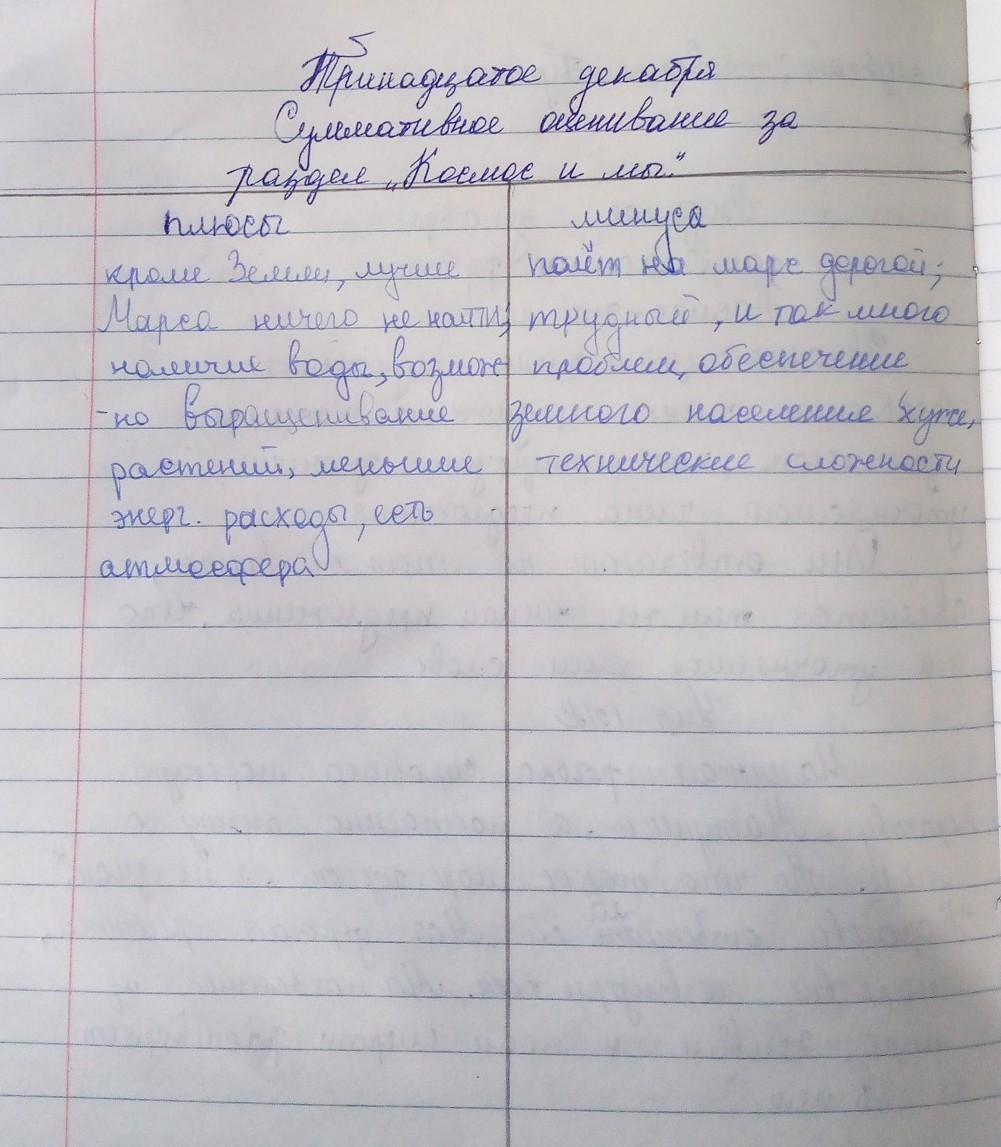 Тринадцатое декабря
Суммативное оценивание за
раздел „Космос и мы".
плюсы
кроме Земли, лучше
Марса ничего не найти,
наличие воды, возмож
-но выращенивание
растений, меньшие
энерг. расходы, есть
атмосфера
минуса
полёт на марс дорогой;
трудный, и так много
проблем, обеспечение
земного населения хуже,
технические сложности